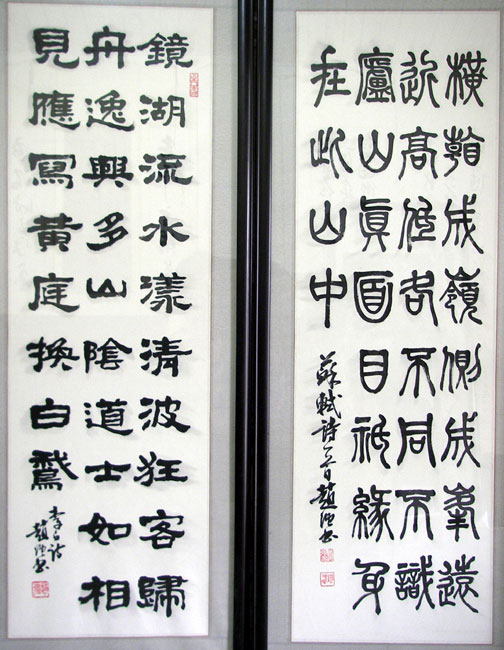 橫看成嶺側成峯遠
近高低各不同不識
廬山眞面目祇緣身
在此山中
蘇軾詩一首趙書
鏡湖流水漾清波狂客歸
舟逸興多山陰道士如相
見應寫黃庭換白鵝
李白詩
趙書